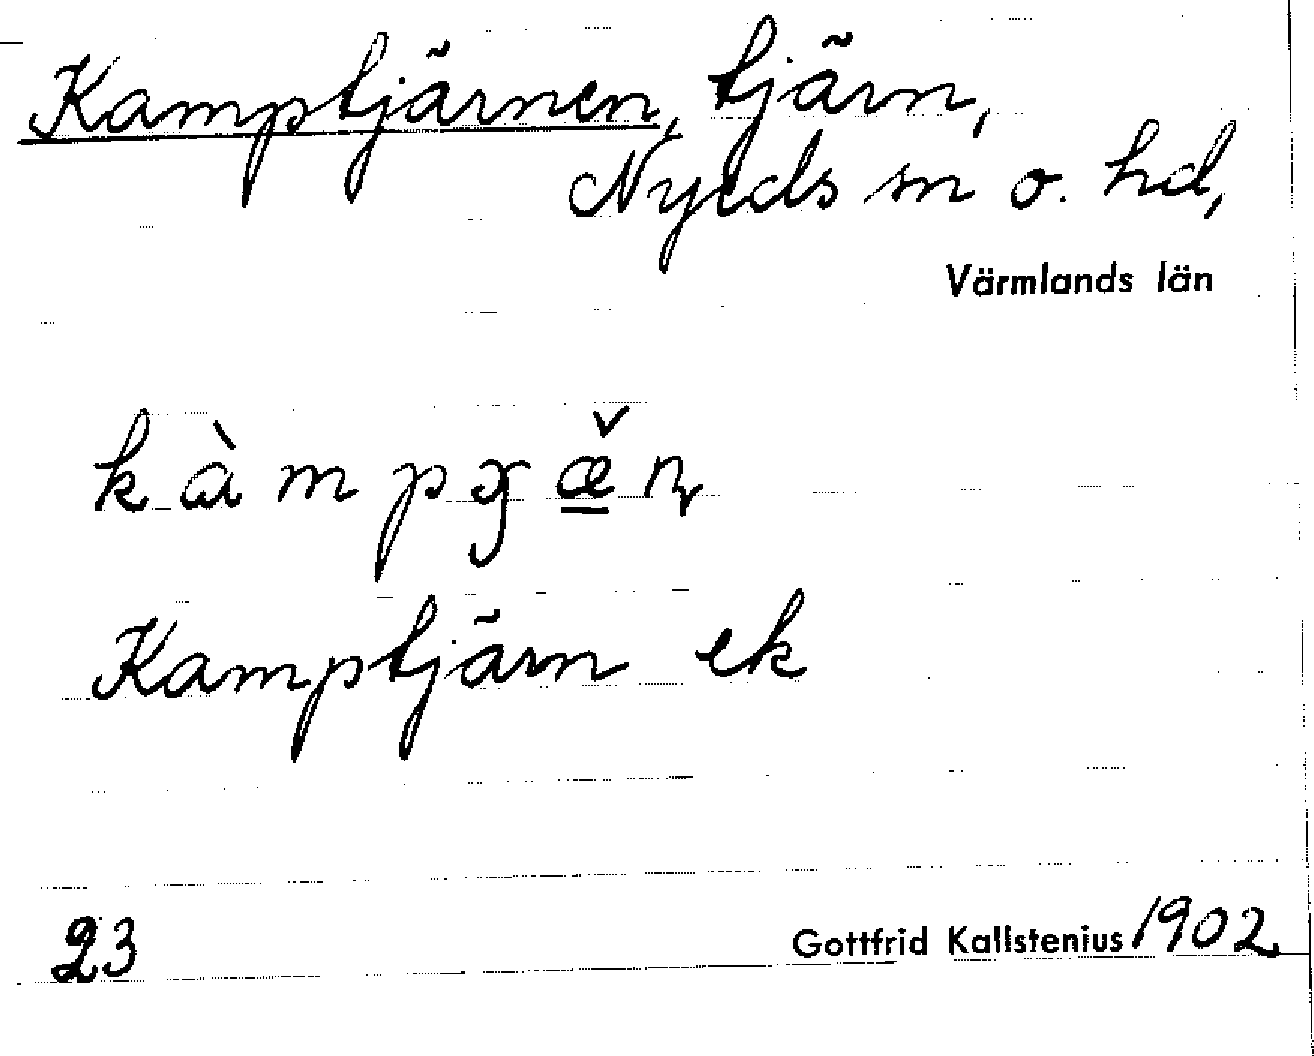 Kamptjärnen, tjärn,
Nyeds sn o. hd,
Värmlands län
kàmpɟæ̲̌ɳ
Kamptjärn ek
23 Gottfrid Kallstenius 1902